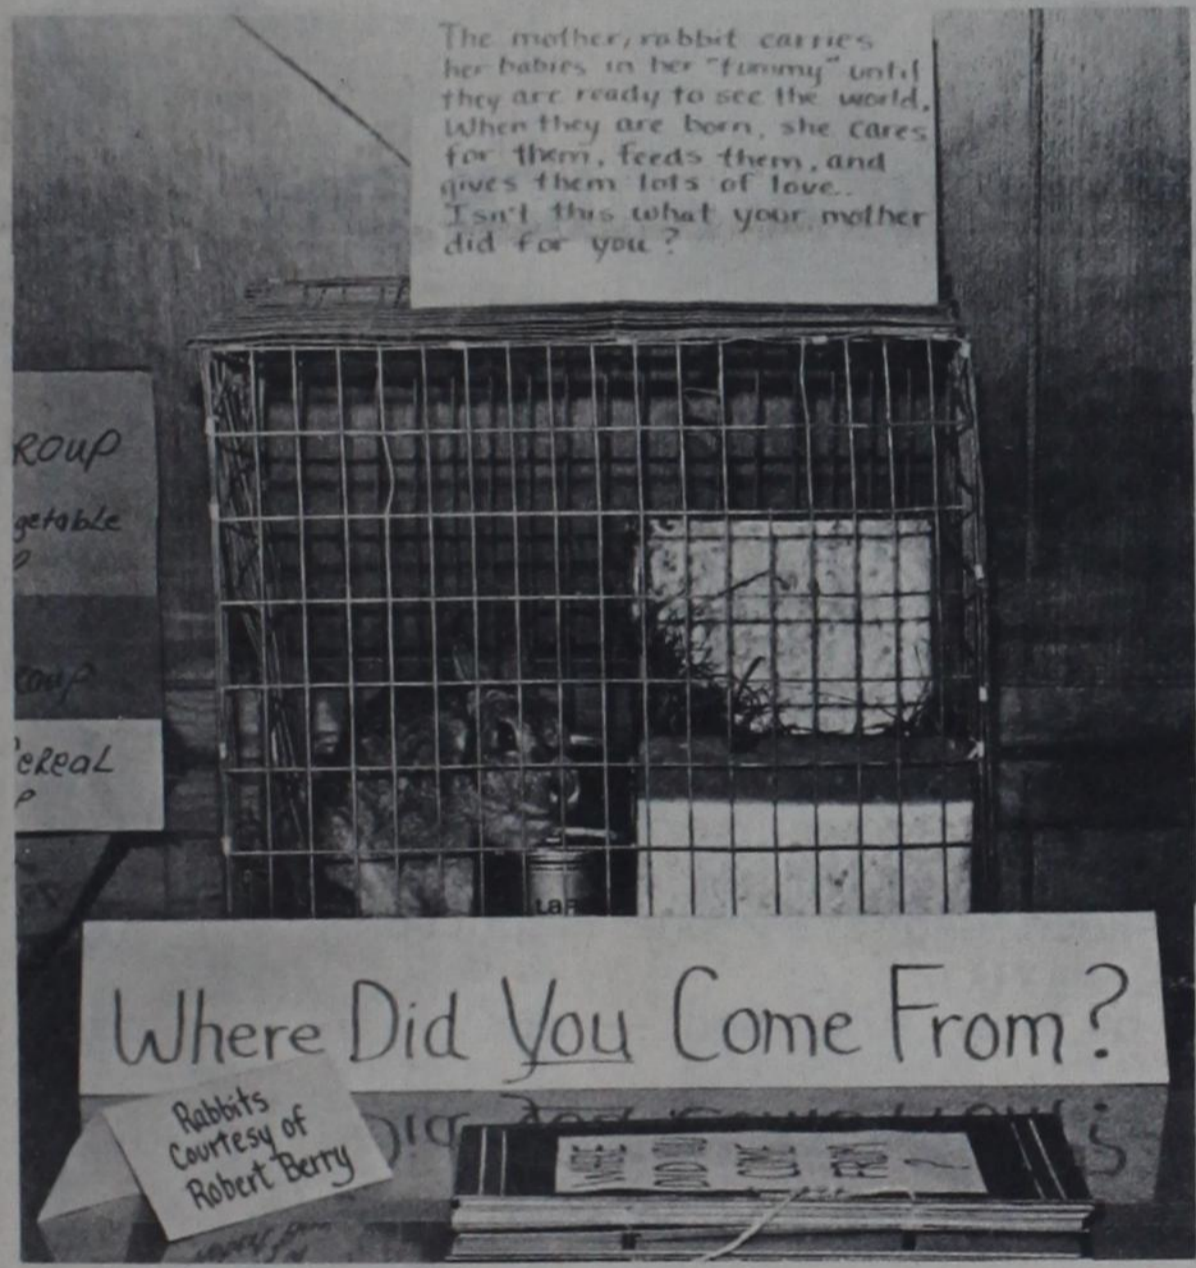 The mother rabbit carries
her babies in her "tummy" until
they are ready to see the world.
When they are born, she cares
for them, feeds them, and
gives them lots of love.
Isn't this what your mother
did for you?
ROUP
getable
ROUP
eReaL
P
LaF
Where Did You Come From?
Rabbits
Courtesy of
Robert Berry
WHERE
DID YOU
COME
FROM
?